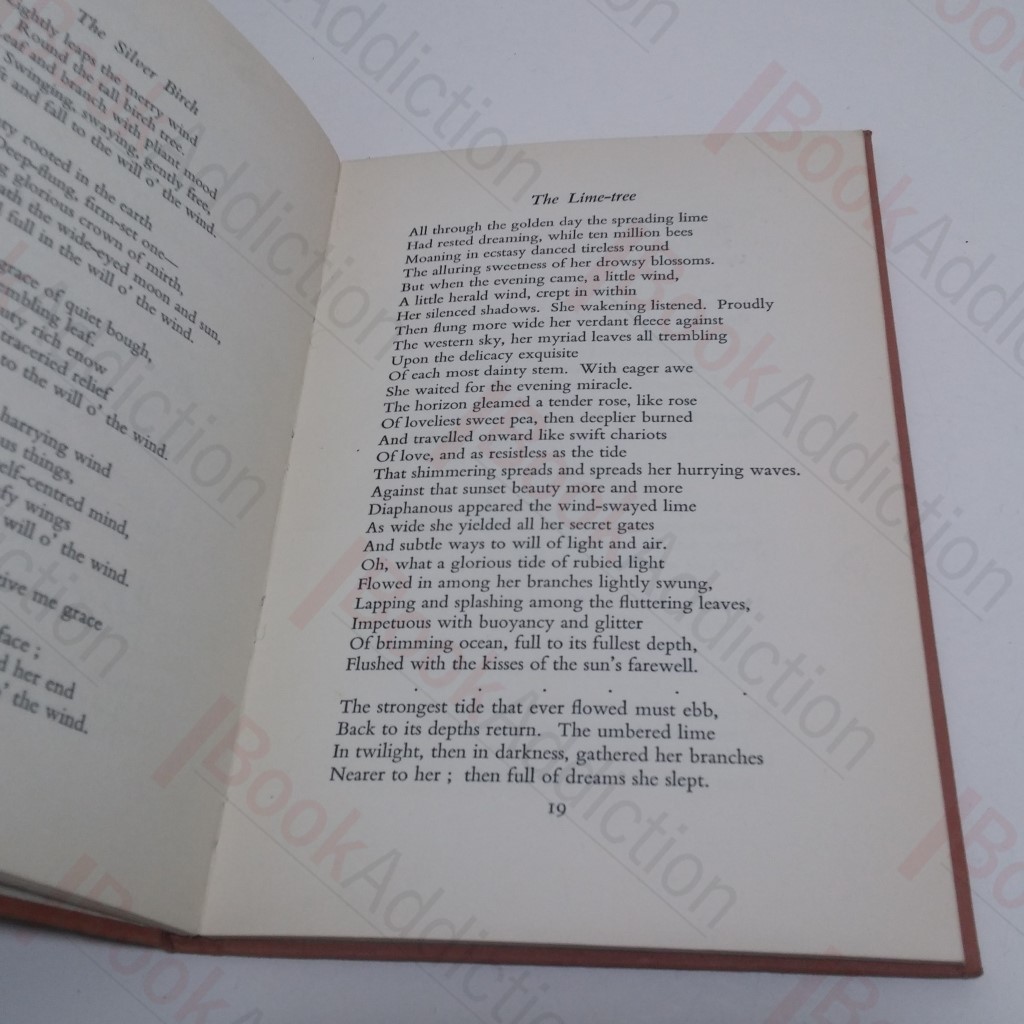 The Silver Birch
Lightly leaps the merry wind
Round the tall birch tree.
Leaf and branch with pliant mood
Swinging, swaying, gently free,
and fall to the will o' the wind.
rooted in the earth
Deep-flung, firm-set one—
glorious crown of mirth,
the wide-eyed moon and sun,
full in the will o' the wind.
grace of quiet bough,
leaf.
rich enow
traceried relief
to the will o' the wind.
harrying wind
things,
self-centred mind,
wings
will o' the wind.
give me grace
face ;
her end
the wind.
The Lime-tree
All through the golden day the spreading lime
Had rested dreaming, while ten million bees
Moaning in ecstasy danced tireless round
The alluring sweetness of her drowsy blossoms.
But when the evening came, a little wind,
A little herald wind, crept in within
Her silenced shadows. She wakening listened. Proudly
Then flung more wide her verdant fleece against
The western sky, her myriad leaves all trembling
Upon the delicacy exquisite
Of each most dainty stem. With eager awe
She waited for the evening miracle.
The horizon gleamed a tender rose, like rose
Of loveliest sweet pea, then deeplier burned
And travelled onward like swift chariots
Of love, and as resistless as the tide
That shimmering spreads and spreads her hurrying waves.
Against that sunset beauty more and more
Diaphanous appeared the wind-swayed lime
As wide she yielded all her secret gates
And subtle ways to will of light and air.
Oh, what a glorious tide of rubied light
Flowed in among her branches lightly swung,
Lapping and splashing among the fluttering leaves,
Impetuous with buoyancy and glitter
Of brimming ocean, full to its fullest depth,
Flushed with the kisses of the sun's farewell.
. . . . . .
The strongest tide that ever flowed must ebb,
Back to its depths return. The umbered lime
In twilight, then in darkness, gathered her branches
Nearer to her ; then full of dreams she slept.
19
BookAddiction